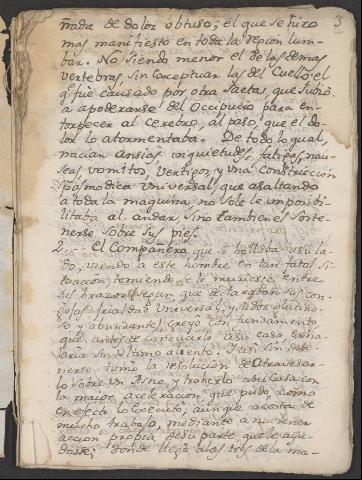 3
ñada de dolor obtuso; el que se hizo
mas manifiesto en toda la region lum-
bar. No siendo menor el de las demas
vertebras, sin exceptuar las del Cuello; el
q.e fue causado por otra Saeta, que subió
à apoderarse del Occipucio para en-
torpecer al Cerebro, al paso que el do-
lor lo atormentaba. De todo lo qual,
nacian Ansias, inquietudes, fatigas, nau-
seas, vomitos, Vertigos, y una Constriccion
spasmodica Universal, que asaltando
à toda la maquina, no solo le imposibi-
litaba al andar, sino tambien el soste-
nerse sobre sus pies.
2... El Compañero, que se hallaba à su la-
do, viendo à este hombre en tan fatal si-
tuacion, temiendo se le muriese entre
sus brazos (segun que declaraban sus con-
gojas, frialdad Universal, y sudor
so y abundante) Creyó con fundamento
que antes de à su casa exha-
laria su ultimo aliento. Y asi sin dete-
nerse tomó la resolucion de atravesar-
lo sobre un Asno, y traherlo à su Casa con
la maior aceleracion que pudo, como
en efecto lo executó, aunque à costa de
mucho trabajo, mediante à no tener
accion propia de su parte que le ayu-
dase; donde llegó à las tres de la ma-